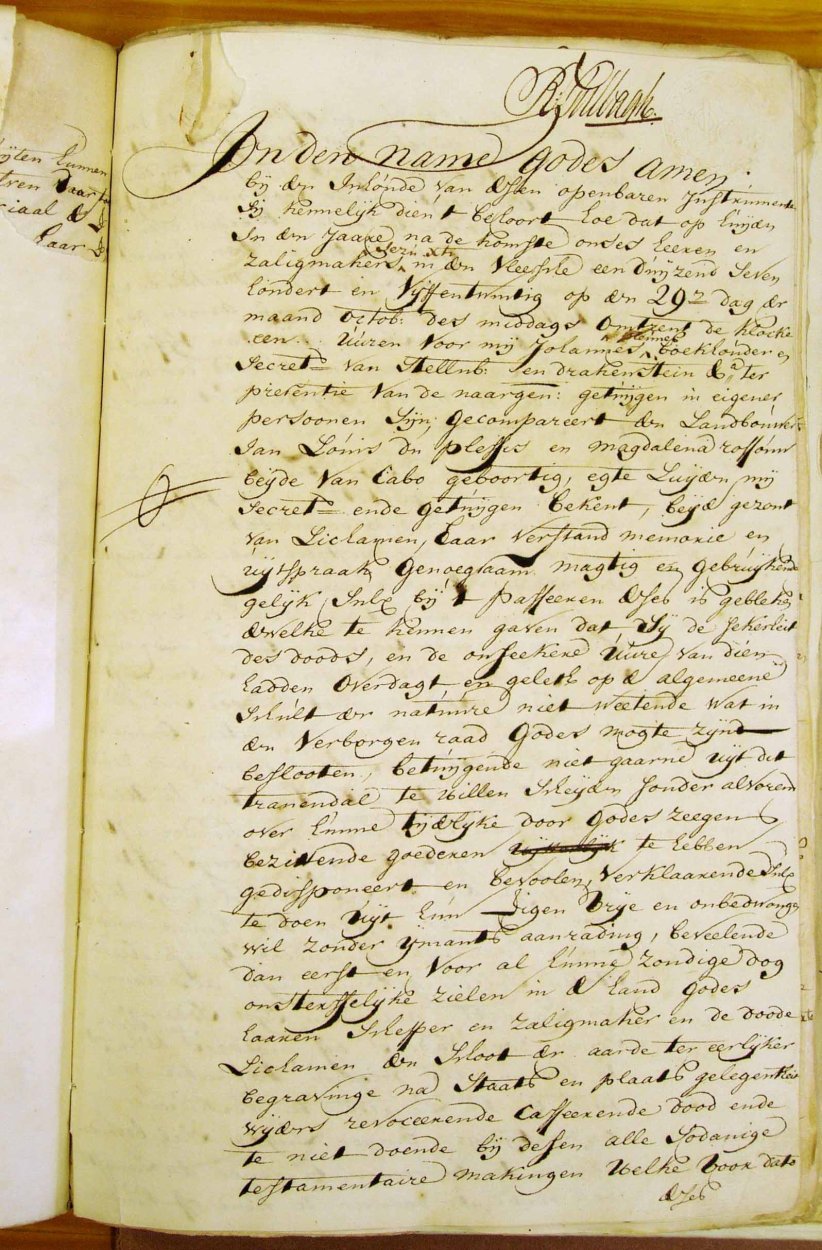 R: Tulbagh.
ijten kunnen
tren daar
ciaal &
haar
In den name godes amen.
bij den Inhoúde van desen openbaren Instrument
Sij kennelijk dien 't behoort hoe dat op húijden
In den Jaare na de komste onses heeren en
zaligmakers, in den vleessche een dúijzend seven
hondert en Vijffentwintig op den 29en dag der
maand octob: des middags omtrent de klocke
een úúren voor mij Johannes boekhoúder en
Secrets van Stellenb: en drakenstein &a ter
presentie van de naargen: getúijgen in eigener
persoonen Sijn gecompareert den Landboúwer
Jan Loúis dú plessis en magdalena rossoúw
beijde van Cabo geboortig, egte Luijden, mij
Secrets ende getúijgen bekent, beijde gezont
van Lichamen, haar verstand memorie en
úijtspraak genoegsaam magtig en gebrúijkende
gelijk Sulx bij 't passeeren deses is gebleken
dewelke te kennen gaven dat Sij de sekerheit
des doods, en de onseekere úúre van dien
hadden overdagt, en geleth op de algemeene
Schúlt der natúúre niet weetende wat in
den Verborgen raad Godes mogte zijnd
beslooten, betúijgende niet gaarne úijt dit
tranendal te willen Scheijden sonder alvorens
over húnne tijdelijke door Godes zeegen
bezittende goederen te hebben
gedisponeert en bevoolen, verklaarende Sulx
te doen úijt hún Eigen Vrije en onbedwonge
wil zonder ijmants aanrading, beveelende
dan eerst en voor al húnne zondige dog
onsterffelijke zielen in de hand Godes
haaren Schepper en zaligmaker en de doode
Lichamen den Schoot der aarde ter eerlijker
begravinge na Staats en plaats gelegentheit
wijders revoceerende Casseerende dood ende
te niet doende bij desen alle Sodanige
testamentaire makingen welke voor dato
deses